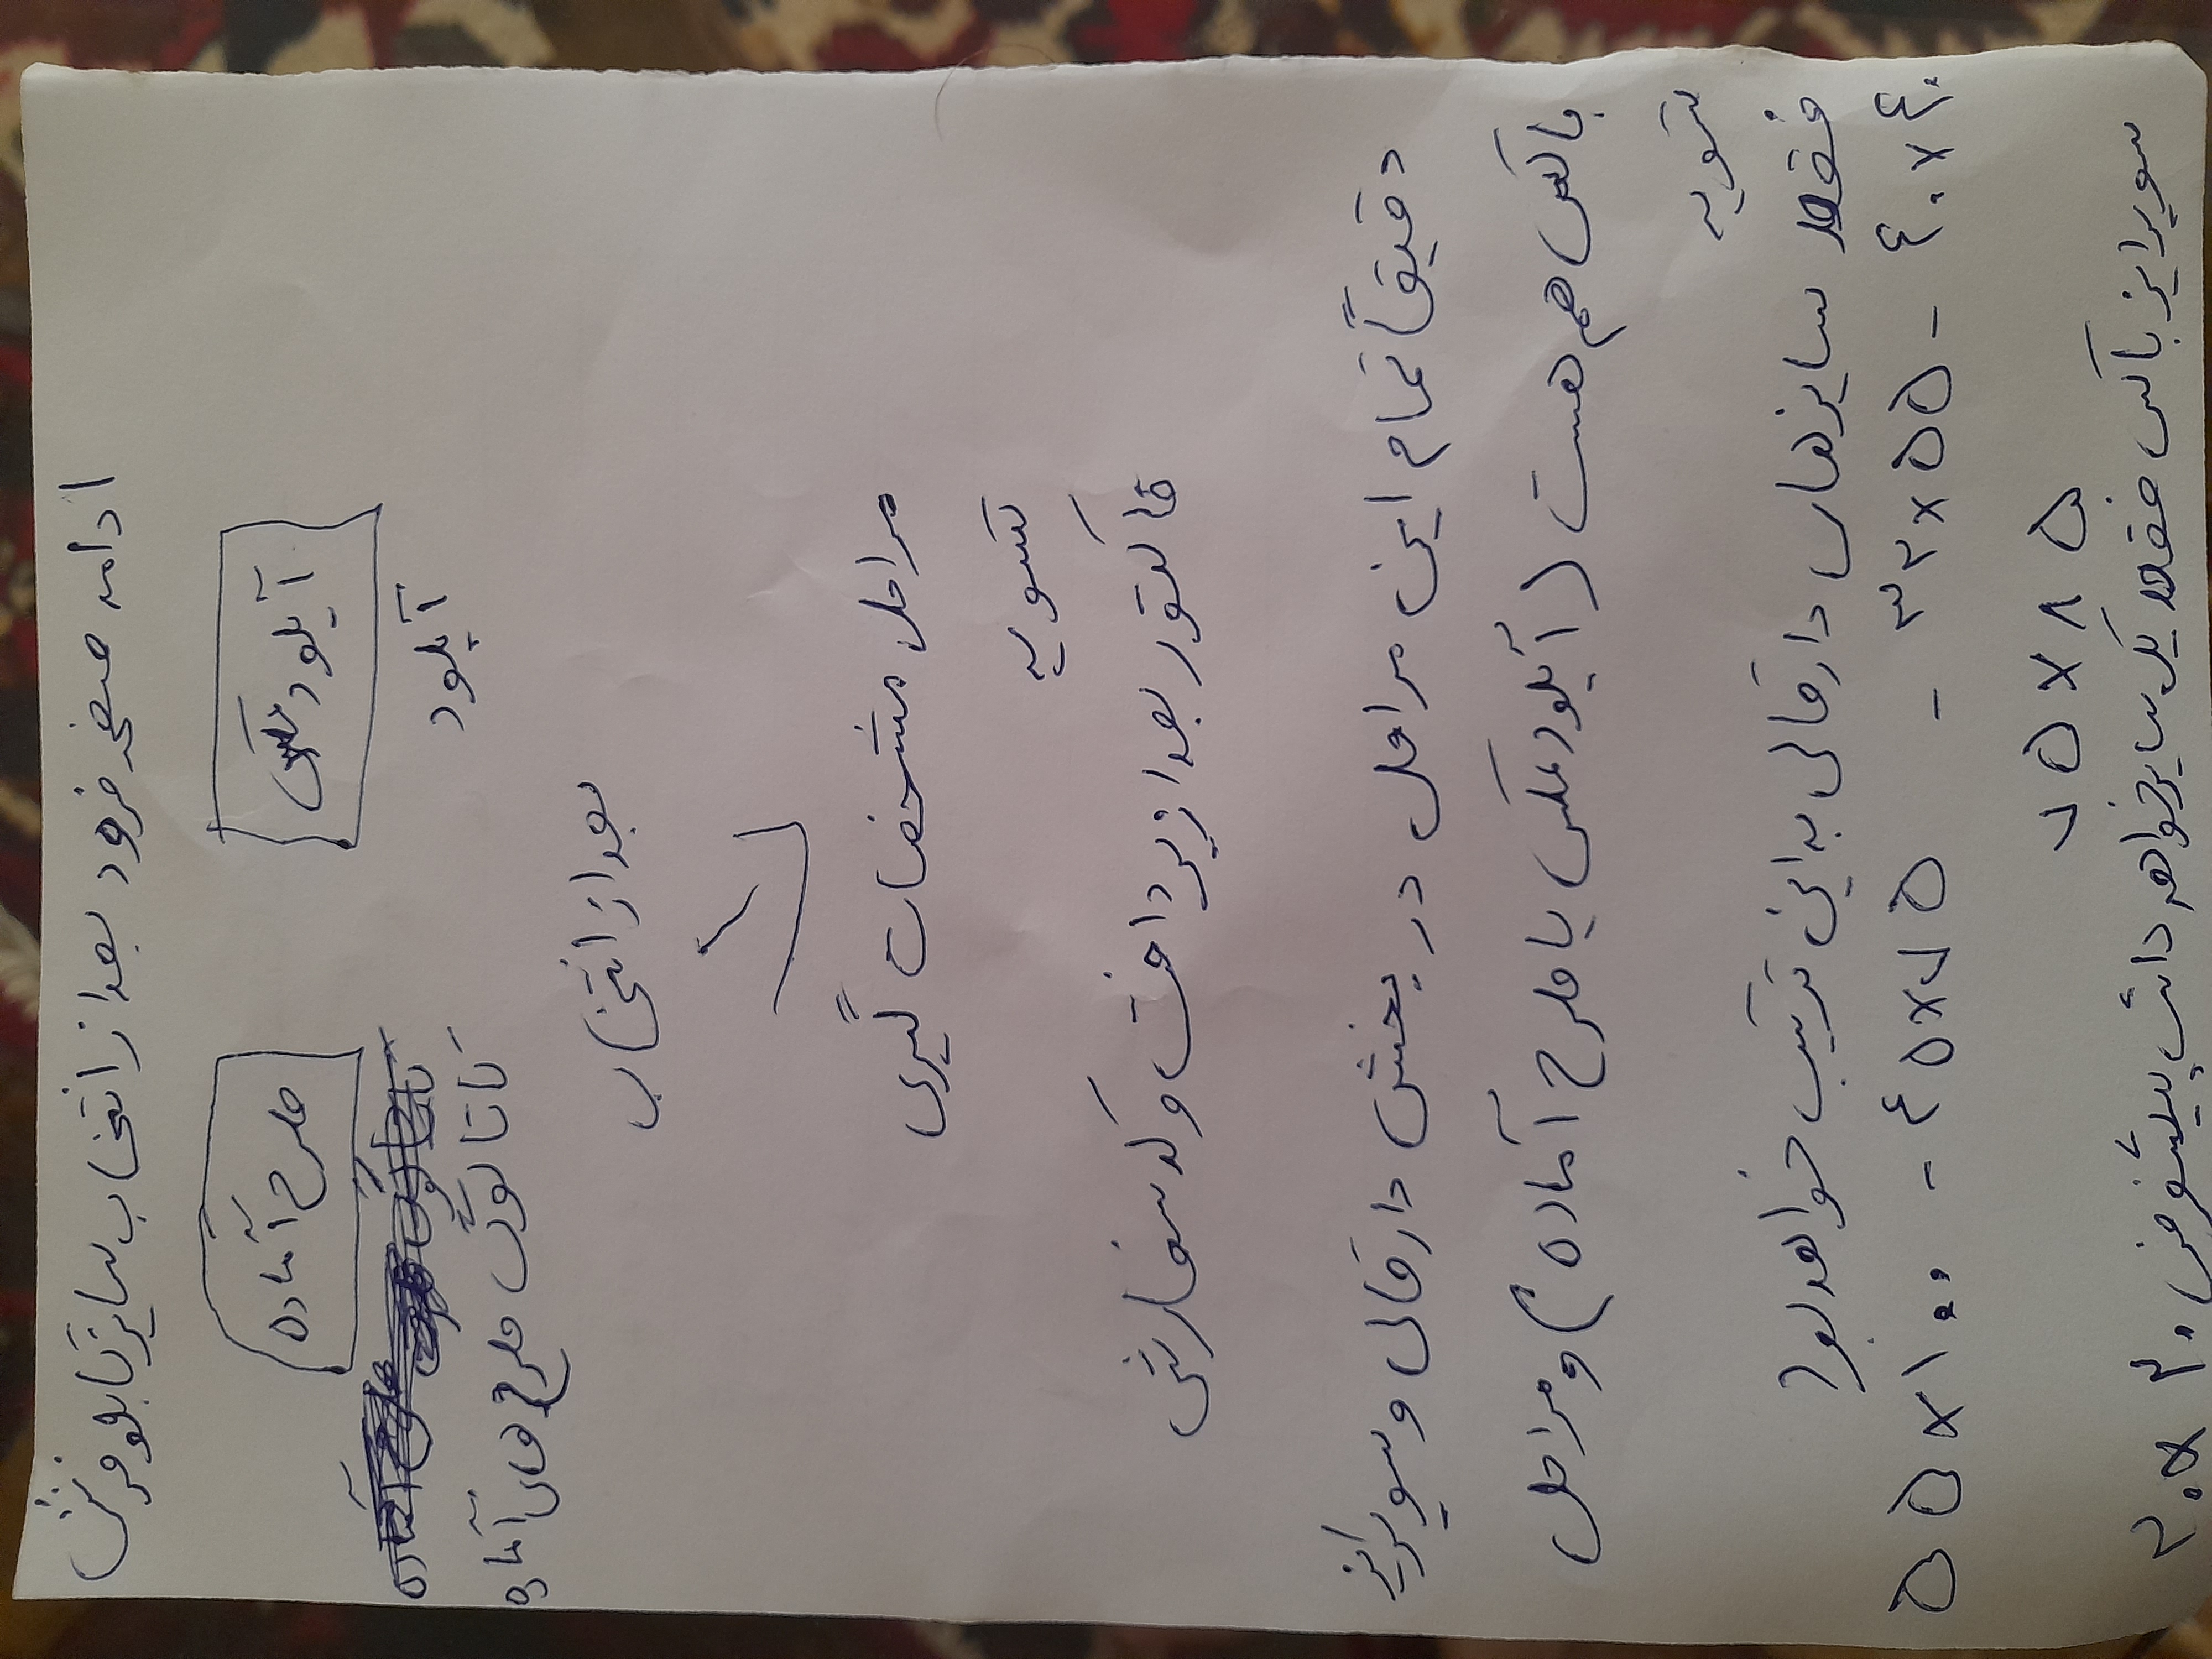 ادامه صفحه فرود بعد از انتخاب سایز تابلو فرش
آپلود عکس
طرح آماده
آپلود
کاتالوگ طرح های آماده
بعد از انتخاب
مراحل مشخصات گیری
تسویه
فاکتور بعد از پرداخت و کد سفارش
دقیقاً تمام این مراحل در بخش دارقالی و سوپرایز
باکس هم هست (آپلود عکس یا طرح آماده) و مراحل
تسویه
فقط سایزهای دارقالی به این ترتیب خواهد بود
۴۰x۴۰ - ۳۲x۵۵ - ۴۵x۷۵ - ۵۵x۱۰۰
۷۵x۸۵
سوپرایز باکس فقط یک سایز خواهد داشت پیشفرض ۲۰x۳۰